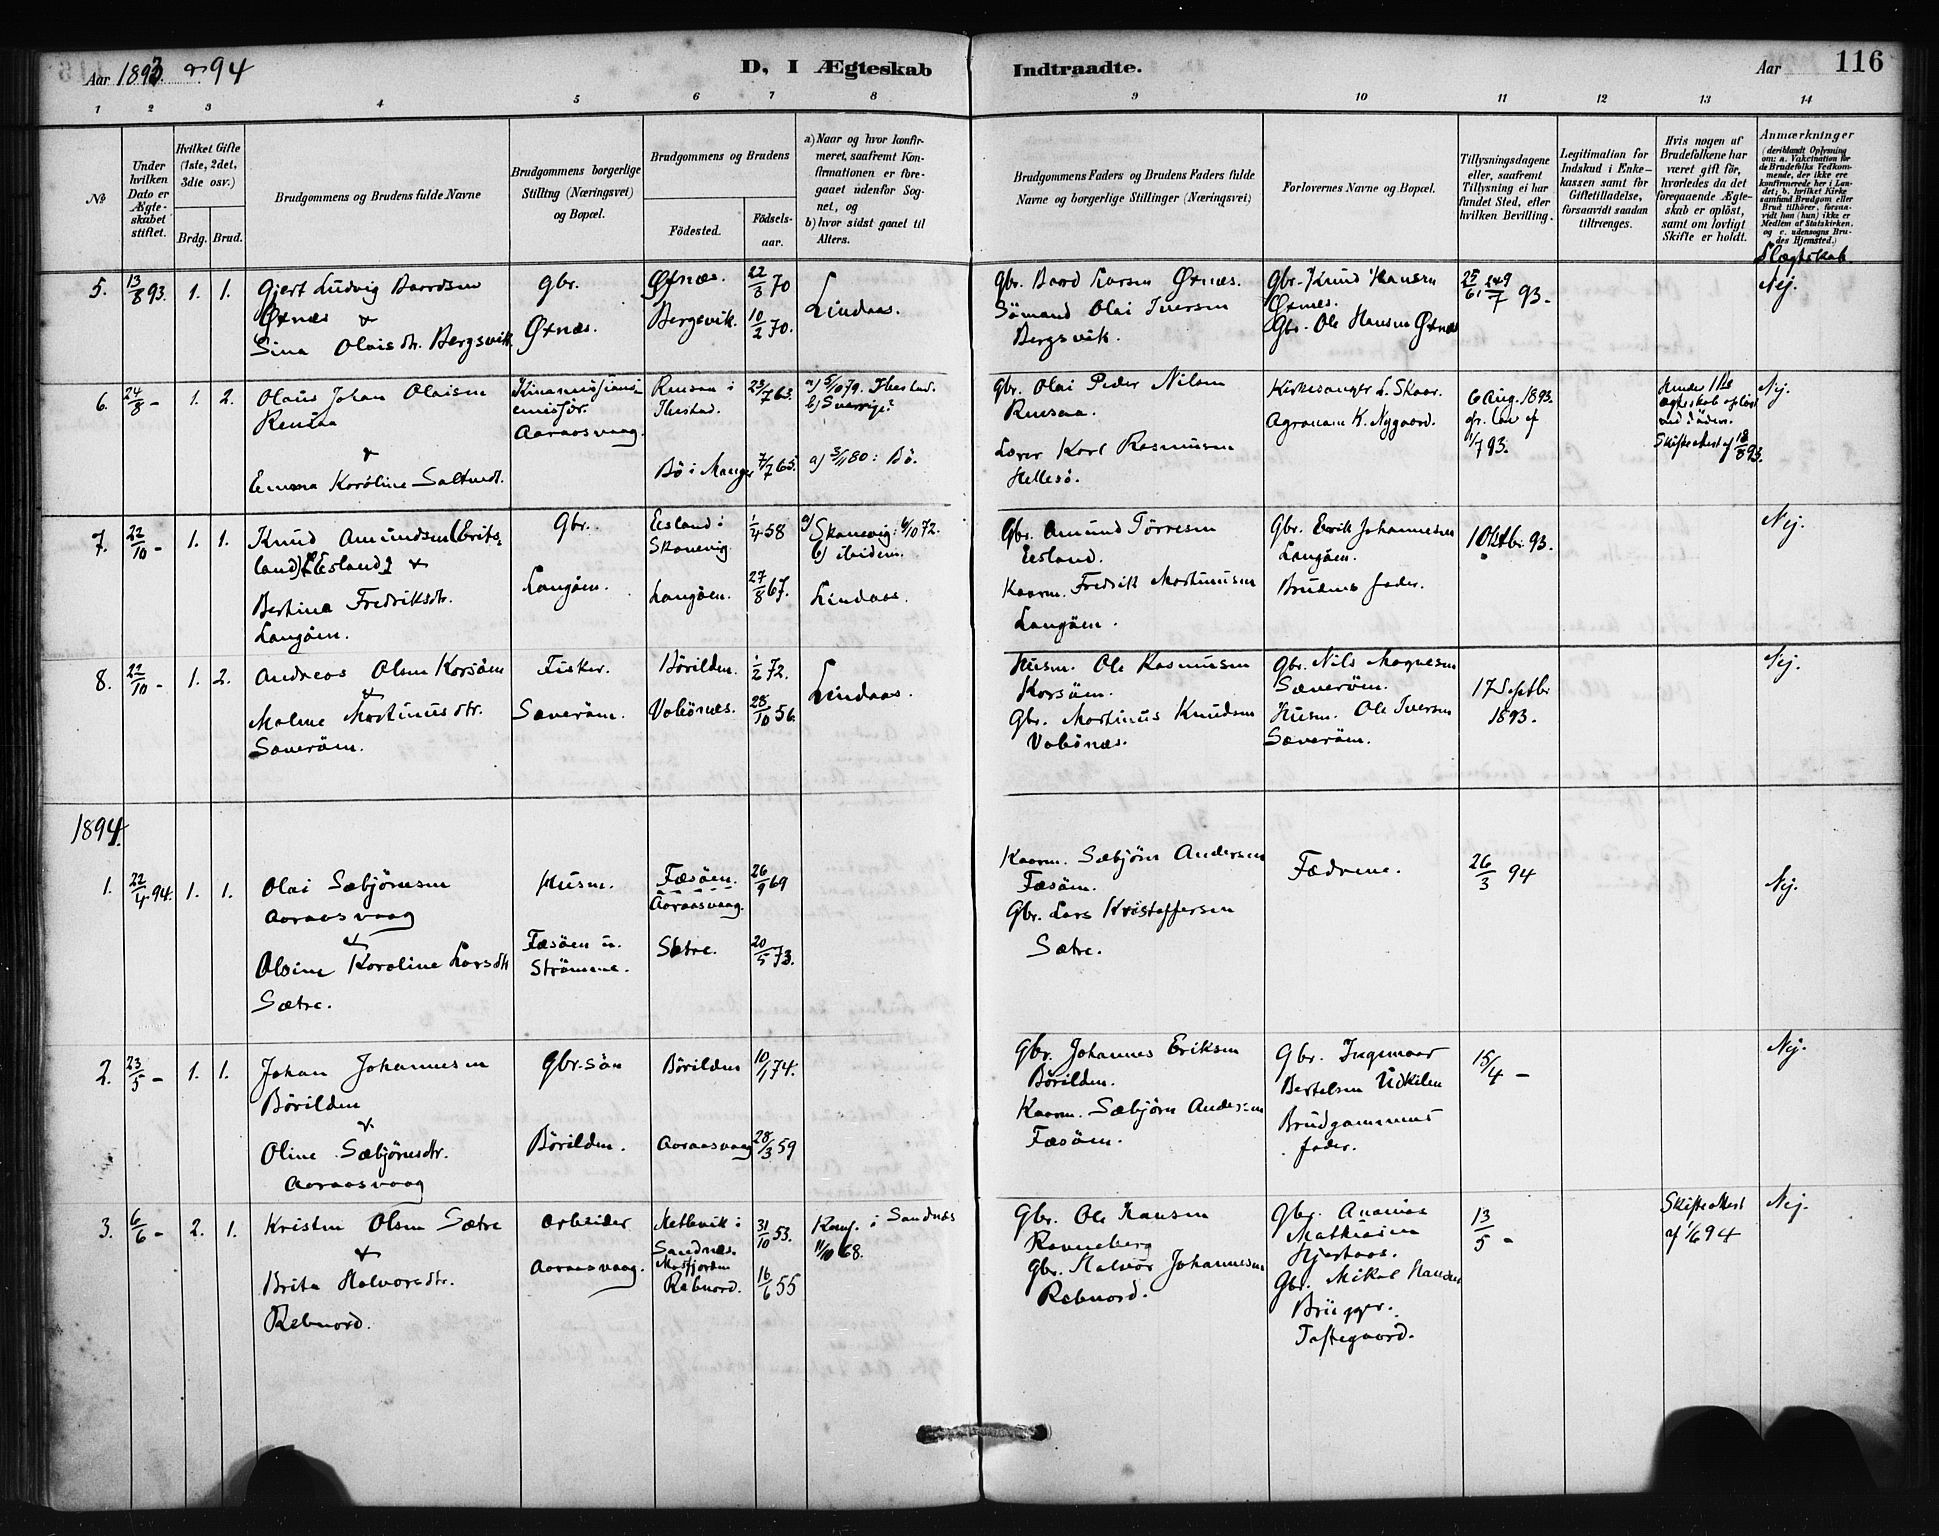 Aar 1893 & 94
D, I Ægteskab
Indtraadte.
Aar
116
1 2 3 4 5 6 7 8 9 10 11 12 13 14
№
Under hvilken Dato er Ægteskabet stiftet.
Hvilket Gifte (1ste, 2det, 3die osv.)
Brdg. Brud.
Brudgommens og Brudens fulde Navne
Brudgommens borgerlige Stilling (Næringsvei) og Bopæl.
Brudgommens og Brudens
Fødested.
Fødselsaar.
a) Naar og hvor konfirmeret, saafremt Konfirmationen er foregaaet udenfor Sognet, og
b) hvor sidst gaaet til Alters.
Brudgommens Faders og Brudens Faders fulde Navne og borgerlige Stillinger (Næringsvei)
Forlovernes Navne og Bopæl.
Tillysningsdagene eller, saafremt Tillysning ei har fundet Sted, efter hvilken Bevilling.
Legitimation for Indskud i Enkekassen samt for Giftetilladelse, forsaavidt saadan tiltrænges.
Hvis nogen af Brudefolkene har været gift før, hvorledes da det foregaaende Ægteskab er opløst, samt om lovligt Skifte er holdt.
Anmærkninger (deriblandt Oplysning om: a. Vakcination for de Brudefolks Vedkommende, der ikke ere konfirmerede her i Landet; b. hvilket Kirkesamfund Brudgom eller Brud tilhører, forsaavidt han (hun) ikke er Medlem af Statskirken, og c. udensogns Brudes Hjemsted.)
Slægtskab.
5. 13/8 93. 1. 1.
Gjert Ludvig Baardsen
Øxnæs &
Sina Olaisdtr. Bergsvik.
Gbr.
Øxnæs.
Øxnæs. 22/3 70
Bergsvik. 10/2 70.
Lindaas.
Gbr. Baard Larsen Øxnæs.
Sömand Olai Iversen
Bergsvik.
Gbr. Knud Hansen
Øxnæs.
Gbr. Ole Hansen Øxnæs
25/6, 2&9/7 93.
Nej.
6. 24/8 - 1. 2.
Olaus Johan Olaisen
Rensaa
&
Emma Karoline Saltundt.
Kinamissions-
emissær.
Aaraasvaag.
Rensaa i
Ibestad. 23/7 63.
Bö i Manger 7/7 65.
a) 5/10 79. Ibestad.
b) Sverrige?
a) 3/1 80: Bö.
Gbr. Olai Peder Nilsen
Rensaa.
Lærer Karl Rasmussen
Hellesö.
Kirkesanger L. Skaar.
Agronom K. Nygaard.
6 Aug. 1893.
gr. lov af
1/7 93.
Hendes 1ste
ægteskab opløst
ved döden.
Skifteattest af 18/8 93.
Nej.
7. 22/10 - 1. 1.
Knud Amundsen (Erits-
land) (Eesland) &
Bertina Fredriksdtr.
Langöen.
Gbr.
Langöen.
Eesland i
Skonevig 1/4 58
Langöen. 27/8 67.
a) Skonevig: 6/10 72.
b) ibidem.
Lindaas.
Gbr. Amund Törresen
Eesland.
Kaarm. Fredrik Martinusen
Langöen.
Gbr. Eerik Johannesen
Langöen.
Brudens fader.
1 Oktbr. 93.
Nej.
8. 22/10 - 1. 2.
Andreas Olsen Korsöen
&
Malene Martinusdtr.
Saveröen.
Fisker.
Saveröen.
Börilden. 1/2 72.
Valönæs. 28/10 56.
Lindaas.
Husm. Ole Rasmussen
Korsöen.
Gbr. Martinus Knudsen
Valönæs.
Gbr. Nils Magnesen
Sæveröen.
Husm. Ole Iversen
Sæveröen.
17 Septbr
1893.
Nej.
1894.
1. 22/4 94. 1. 1.
Olai Sæbjörnsen
Aaraasvaag
&
Olsine Karoline Larsdtr
Sætre.
Husm.
Fæsöen u.
Strömme.
Fæsöen.
Aaraasvaag. 26/9 69
Sætre. 20/5 73.
Kaarm. Sæbjörn Andersen
Fæsöen.
Gbr. Lars Kristoffersen
Sætre.
Fædrene.
26/3 94
Nej.
2. 23/5 - 1. 1.
Johan Johannesen
Börilden
&
Oline Sæbjörnsdtr.
Aaraasvaag
Gbr. Sön
Börilden.
Börilden 10/1 74.
Aaraasvaag 28/3 59
Gbr. Johannes Eriksen
Börilden.
Kaarm. Sæbjörn Andersen
Fæsöen.
Gbr. Ingemaar
Bertelsen Udkilen
Brudgommens
fader.
15/4 -
Nej.
3. 6/6 - 2. 1.
Kristen Olsen Sætre
&
Brita Halvorsdtr.
Rebnord.
Arbeider
Aaraasvaag.
Kethevik i
Sandnæs.
Masfjorden 31/10 53.
Rebnord. 16/6 55
Konf. i Sandnæs
11/10 68.
Gbr. Ole Hansen
Ravneberg
Gbr. Halvor Johannesen
Rebnord.
Gbr. Ananias
Mathiasen
Hjertaas.
Gbr. Mikal Hansen
Brügger.
Toftegaard.
13/5 -
Skifteattest
af 1/6 94
Nej.